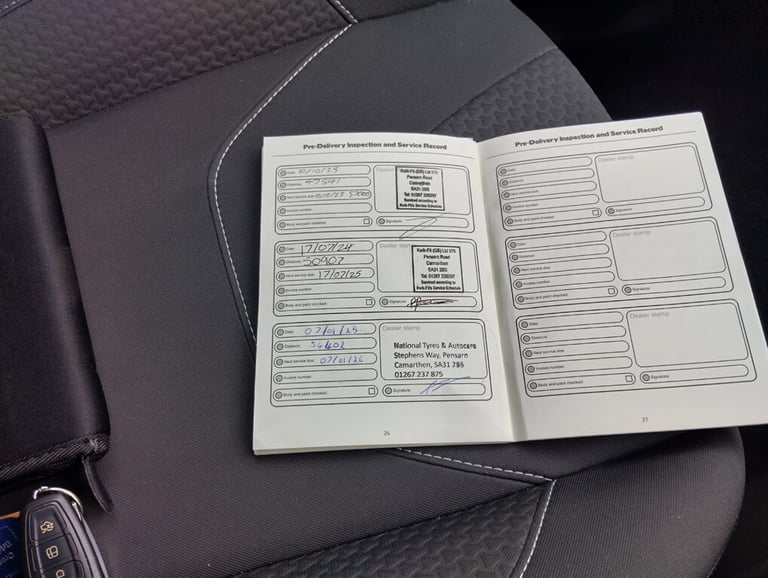 Pre-Delivery Inspection and Service Record
Date: 10/10/23
Distance: 47541
Next service due:
Invoice number:
Body and paint checked:
Dealer
Kwik-Fit (GB) Ltd 575
Pensarn Road
Carmarthen
SA31 2BS
Tel: 01267 239297
Serviced according to
Kwik-Fit's Service Schedule
Signature:
Date: 17/07/24
Distance: 50907
Next service due: 17/07/25
Invoice number:
Body and paint checked:
Dealer stamp
Kwik-Fit (GB) Ltd 575
Pensarn Road
Carmarthen
SA31 2BS
Tel: 01267 239297
Serviced according to
Kwik-Fit's Service Schedule
Signature:
Date: 07/01/25
Distance: 54402
Next service due: 07/01/26
Invoice number:
Body and paint checked:
Dealer stamp
National Tyres & Autocare
Stephens Way, Pensarn
Camarthen, SA31 2BS
01267 237 875
Signature:
26
Pre-Delivery Inspection and Service Record
Date:
Distance:
Next service due:
Invoice number:
Body and paint checked:
Dealer stamp
Signature:
Date:
Distance:
Next service due:
Invoice number:
Body and paint checked:
Dealer stamp
Signature:
Date:
Distance:
Next service due:
Invoice number:
Body and paint checked:
Dealer stamp
Signature:
27